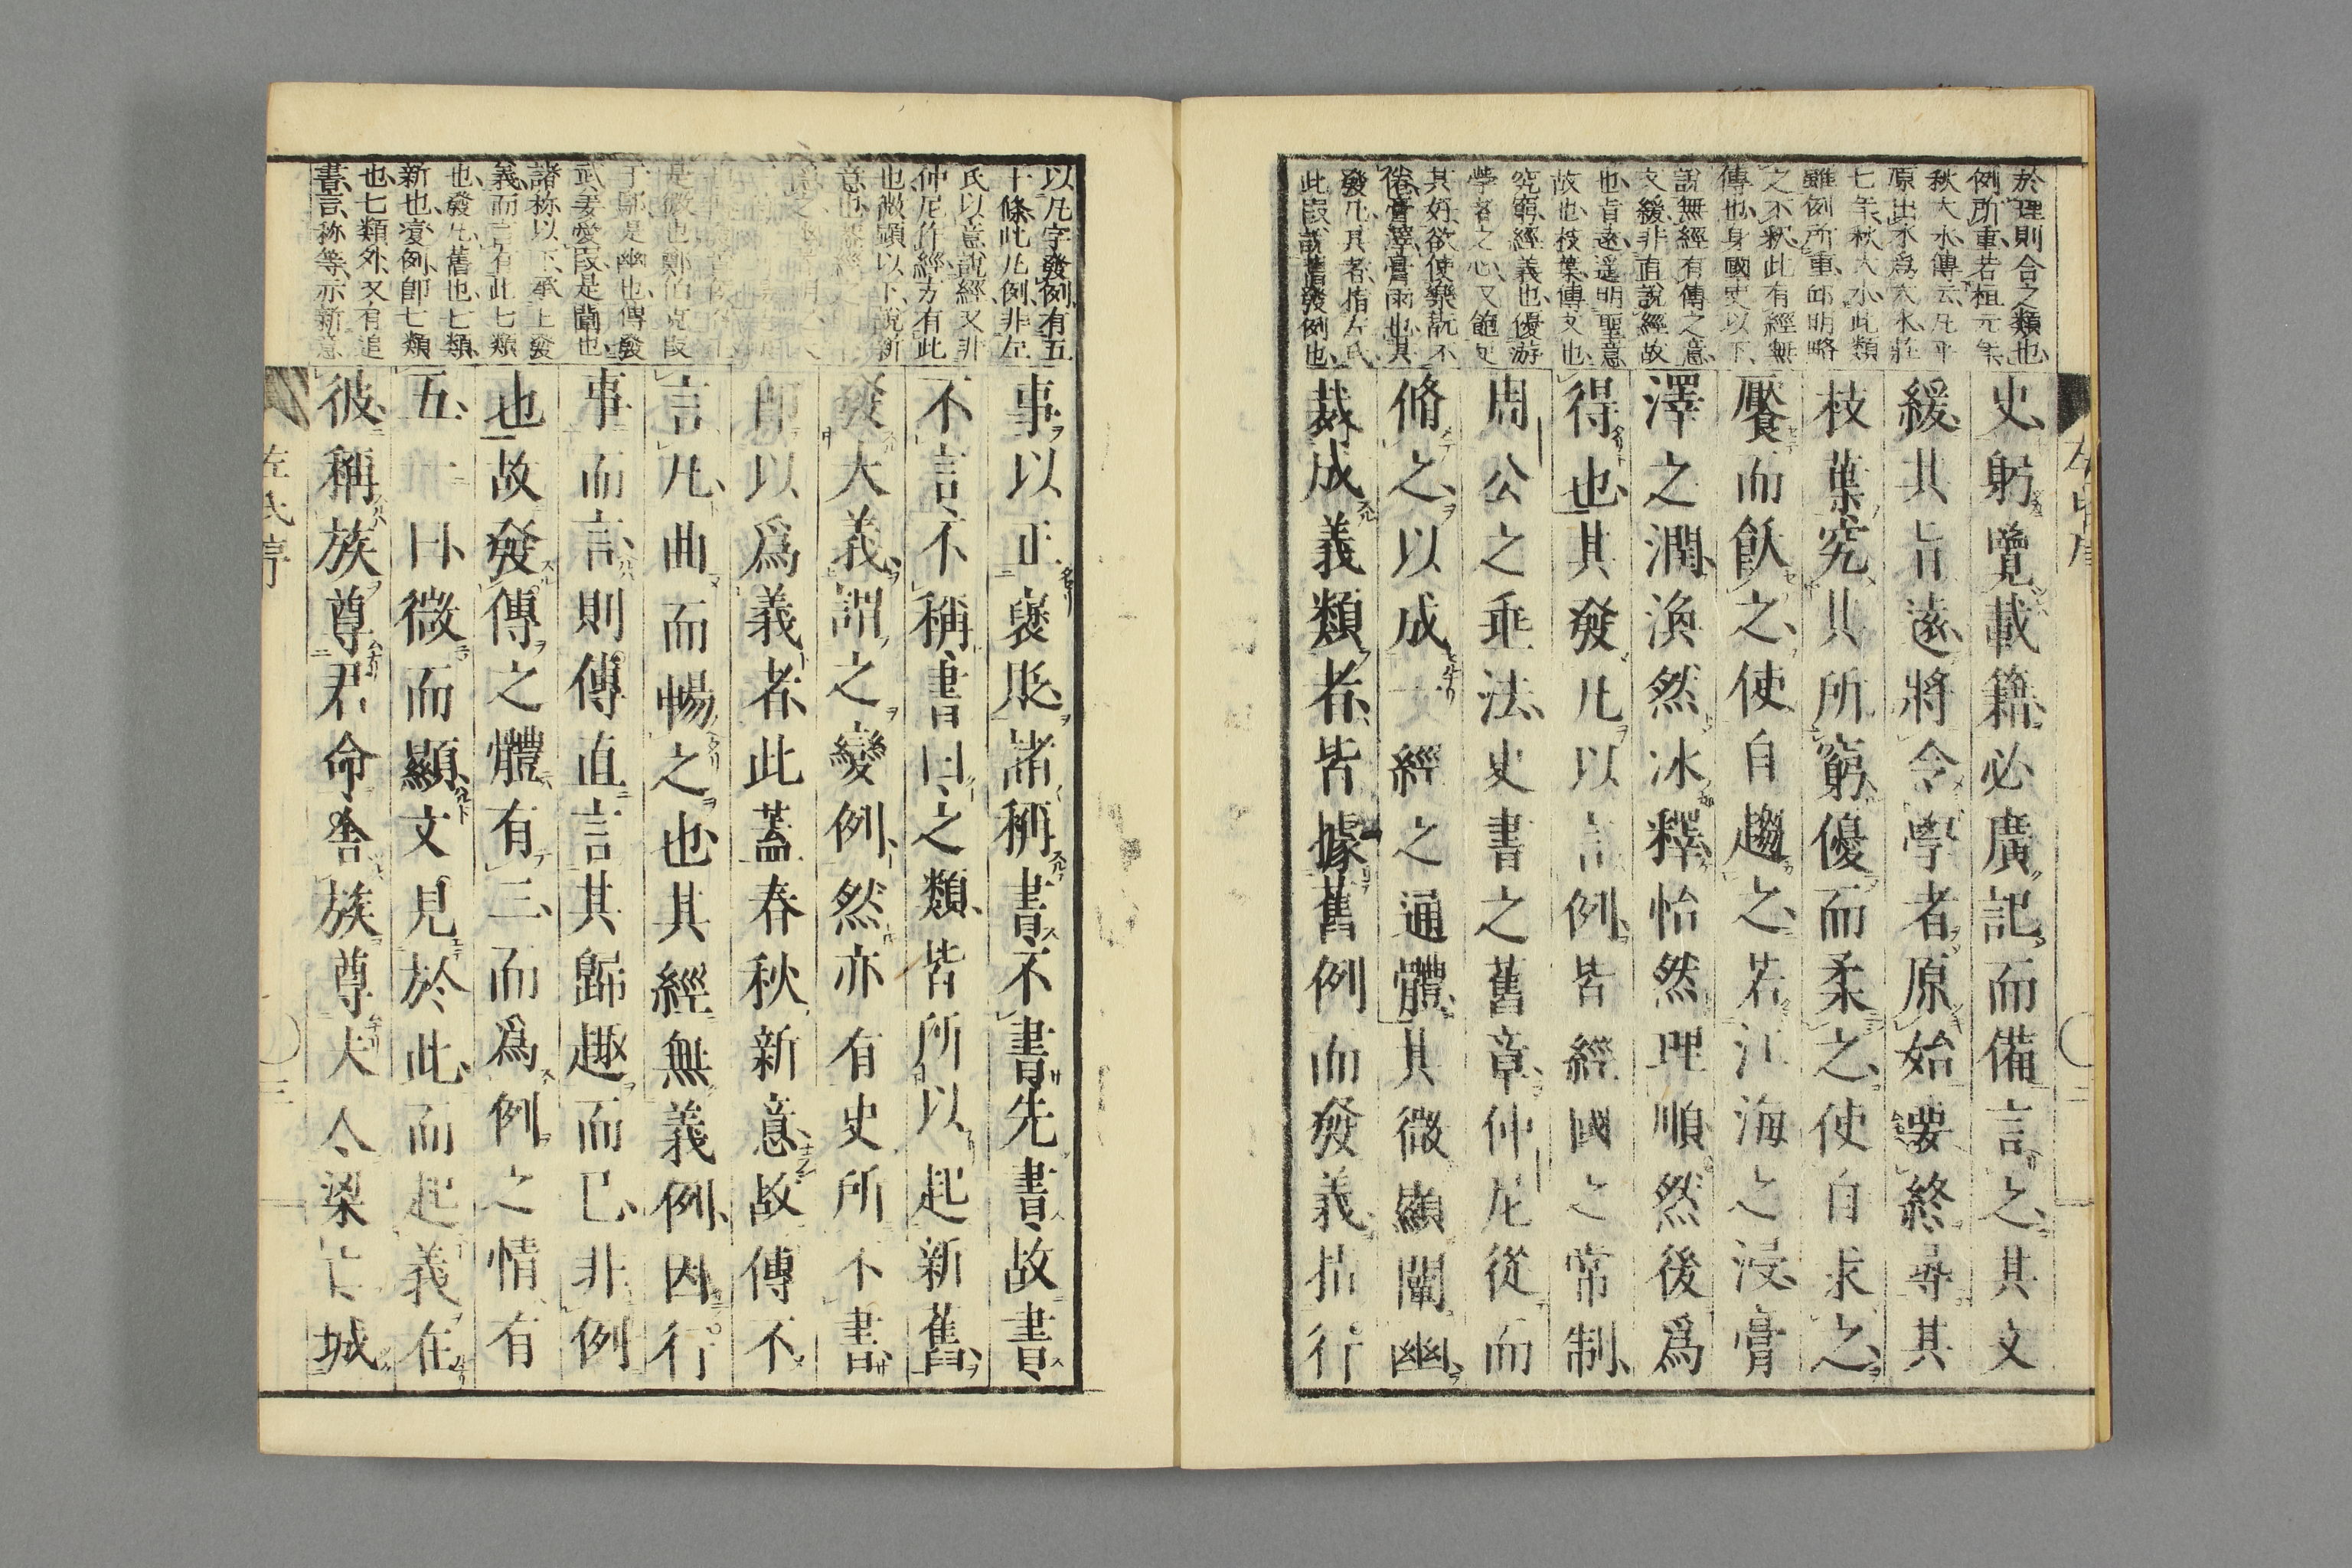 史躬覽載籍必廣記而備言之其文
緩其旨遠將令學者原始要終尋其
枝葉究其所窮優而柔之使自求之
饜而飫之使自趨之若江海之浸膏
澤之潤渙然冰釋怡然理順然後爲
得也其發凡以言例皆經國之常制
周公之垂法史書之舊章仲尼從而
脩之以成一經之通體其微顯闡幽
裁成義類者皆據舊例而發義指行
於理則合之類也
例所重若桓元年
秋大水傳云凡平
原出水爲大水莊
七年秋大水此類
雖例所重邱明略
之不釈此有經無
傳也身國史以下
說無經有傳之意
文緩非直說經故
也旨遠遥明聖意
故也枝葉傳文也
究窮經義也優游
學者之心又飽足
其好欲使樂翫不
倦膏澤膏雨也其
發凡其者指左氏
此段説舊發例也
事以正褒貶諸稱書不書先書故書
不言不稱書曰之類皆所以起新舊
發大義謂之變例然亦有史所不書
即以爲義者此蓋春秋新意故傳不
言凡曲而暢之也其經無義例因行
事而言則傳直言其歸趣而已非例
也故發傳之體有三而爲例之情有
五一曰微而顯文見於此而起義在
彼稱族尊君命舍族尊夫人梁亡城
以凡字發例有五
十條此凡例非左
氏以意說經又非
仲尼作經方有此
也微顯以下說新
是微也鄭伯克段
于鄢是幽也傳發
武姜愛段是闡也
諸称以下承上發
義而言有此七類
也發凡舊也七類
新也変例即七類
也七類外又有追
書言称等示新意
左氏序
三